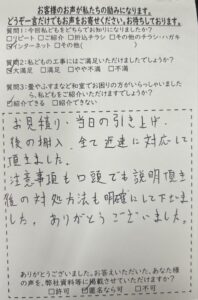 お客様のお声が私たちの励みになります。
どうぞ一言だけでもお声をお寄せください。お待ちしております。
質問1:今回私どもをどちらでお知りになりましたか？
□リピート □ご紹介 □折込チラシ □その他のチラシ・ハガキ
☑インターネット □その他( )
質問2:私どもの工事にはご満足いただけましたでしょうか？
☑大満足 □満足 □やや不満 □不満
質問3:畳やふすまなどが必要でお困りの方がいらっしゃいましたら、
私どもをご紹介いただけますでしょうか？
☑紹介できる □紹介できない
お見積り、当日の引き上げ、
後の搬入、全て迅速に対応して
頂きました。
注意事項も口頭でも説明頂き
後の対処方法も明確にして下さいま
した。ありがとうございました。
ありがとうございました。お答えいただいた、あなた様
の声を、弊社資料等に掲載させていただけますか？
□許可 ☑匿名なら可 □不可